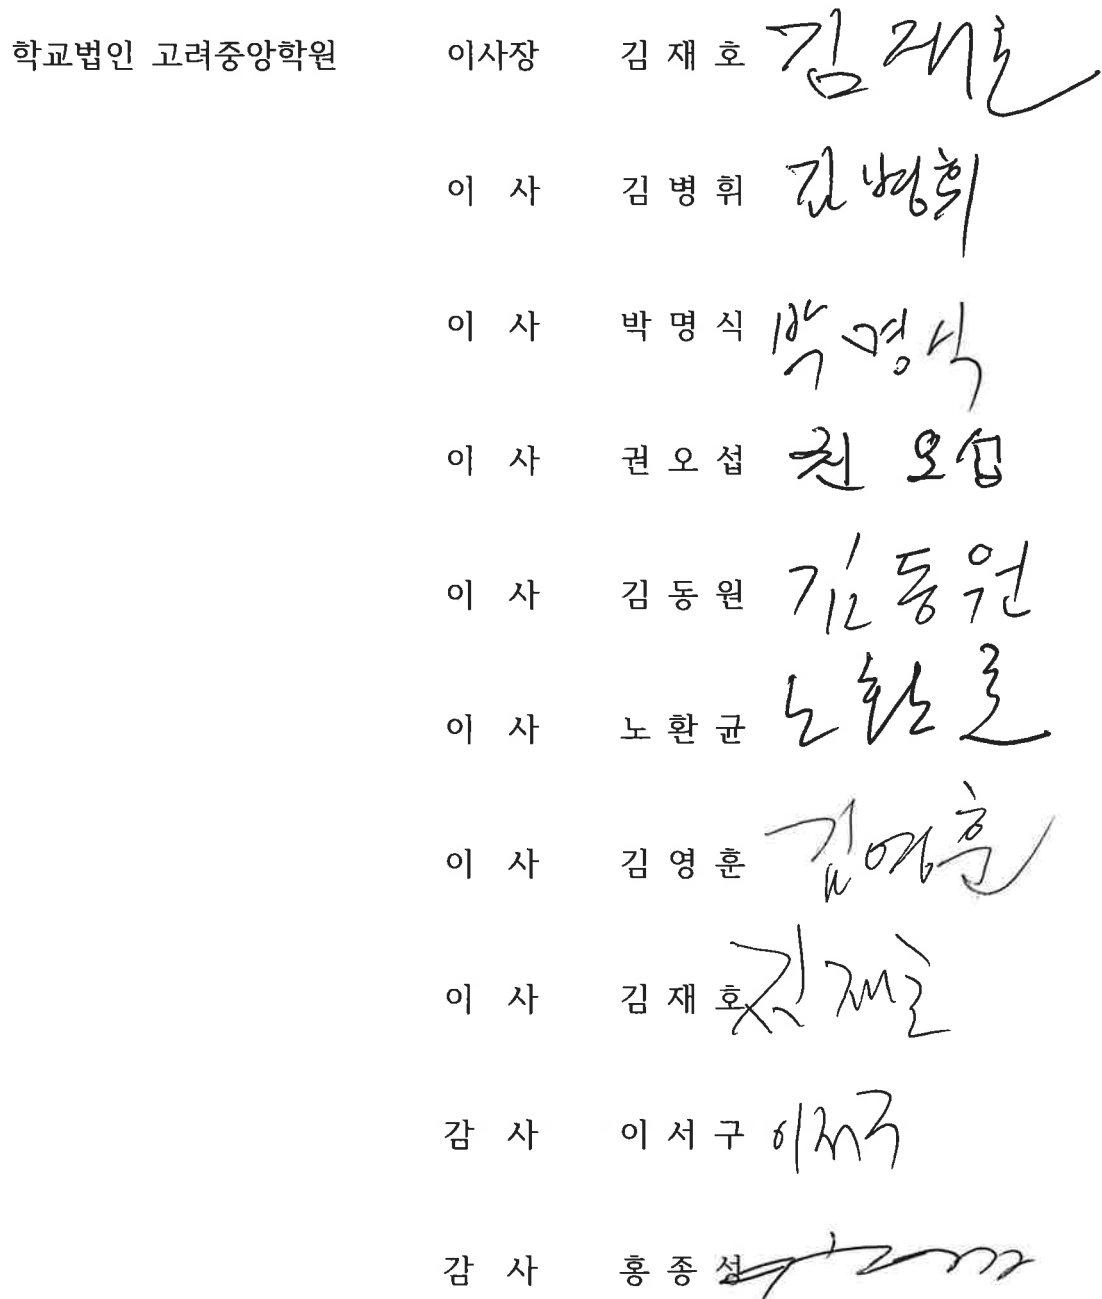 학교법인 고려중앙학원 이사장 김 재 호 김 재 호
이 사 김 병 휘 김 병 휘
이 사 박 명 식 박 명 식
이 사 권 오 섭 권 오 섭
이 사 김 동 원 김 동 원
이 사 노 환 균 노 환 균
이 사 김 영 훈 김 영 훈
이 사 김 재 호 김 재 호
감 사 이 서 구 이 서 구
감 사 홍 종 성